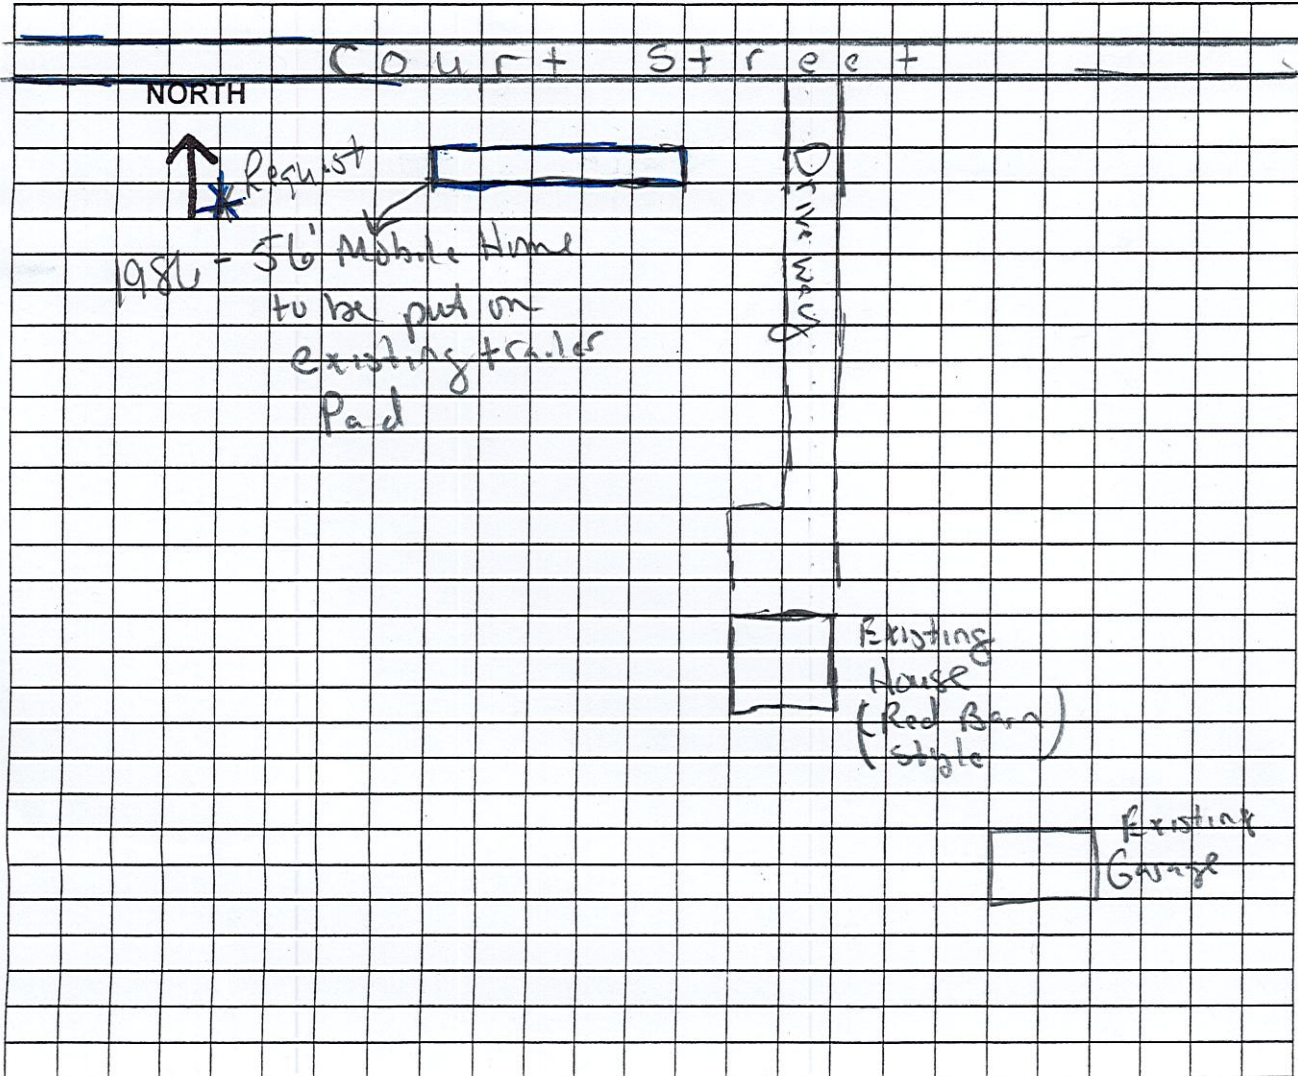 Court Street
NORTH
* Request
1986 - 56' Mobile Home
to be put on
existing trailer
Pad
Driveway
Existing
House
(Red Barn
style)
Existing
Garage